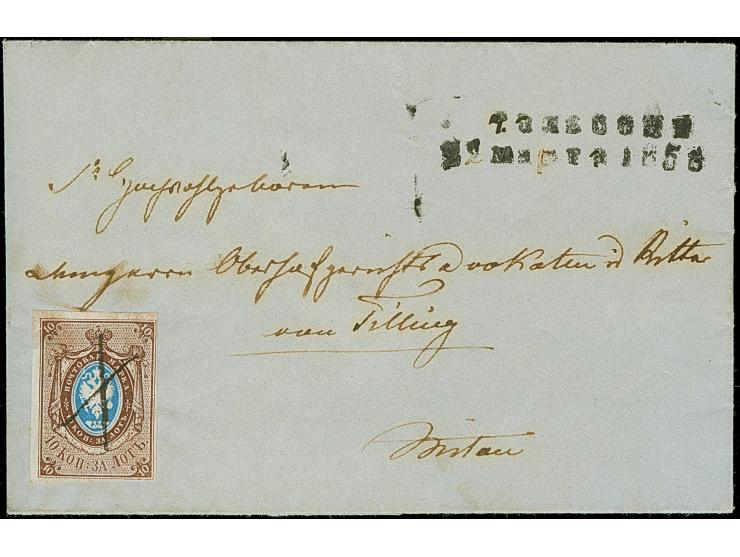 22 Марта 1858
Sr Hochwohlgeboren
Oberhofgerichts Advokaten u Ritter
von Tilling
Mitau
10 10
ПОЧТОВАЯ МАРКА
10 КОП: ЗА ЛОТЪ
10 КОП: ЗА ЛОТЪ.
10 10